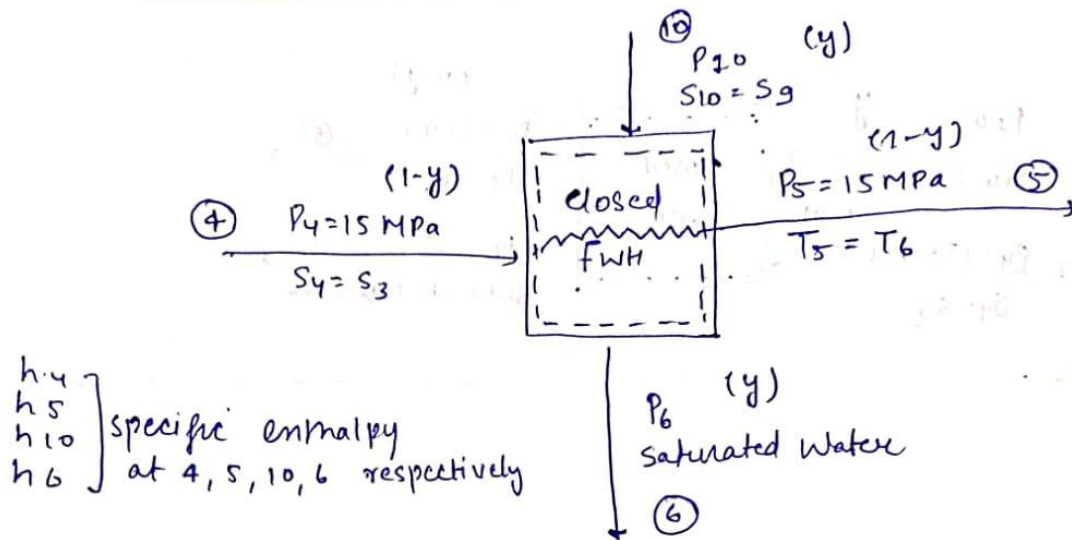 ⑩
P10 (y)
S10 = S9
(1-y)
P4=15 MPa
④
S4= S3
closed
FWH
(1-y)
P5=15 MPa ⑤
T5 = T6
h4
h5
h10
h6
specific enthalpy
at 4, 5, 10, 6 respectively
P6 (y)
saturated water
⑥